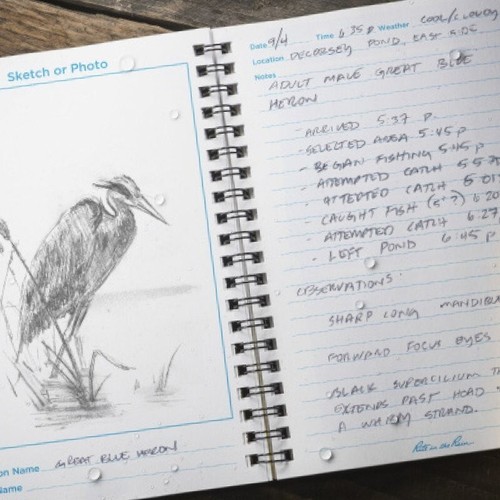 Sketch or Photo
on Name GREAT BLUE HERON
Name
Date 9/4 Time 6:35 P Weather COOL/CLOUDY
Location DECOBSEY POND, EAST SIDE
Notes
ADULT MALE GREAT BLUE
HERON
- ARRIVED 5:37 P.
- SELECTED AREA 5:45 P
- BEGAN FISHING 5:45 P
- ATTEMPTED CATCH
- ATTEPTED CATCH
- CAUGHT FISH (5"?) 6:20
- ATTEMPTED CATCH 6:27
- LEFT POND 6:45 P
OBSERVATIONS:
SHARP LONG MANDIBL
FORWARD FOCUS EYES
BLACK SUPERCILIUM TH
EXTENDS PAST HEAD
A WHISPY STRAND.
Rite in the Rain